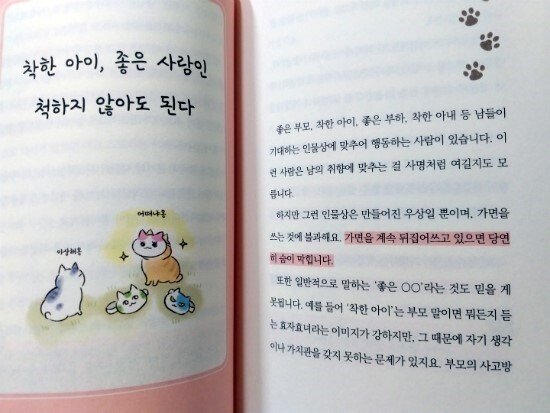 착한 아이, 좋은 사람인
척하지 않아도 된다
어때냐옹
이상해옹
좋은 부모, 착한 아이, 좋은 부하, 착한 아내 등 남들이
기대하는 인물상에 맞추어 행동하는 사람이 있습니다. 이
런 사람은 남의 취향에 맞추는 걸 사명처럼 여길지도 모
릅니다.
하지만 그런 인물상은 만들어진 우상일 뿐이며, 가면을
쓰는 것에 불과해요. 가면을 계속 뒤집어쓰고 있으면 당연
히 숨이 막힙니다.
또한 일반적으로 말하는 '좋은 ○○'라는 것도 믿을 게
못됩니다. 예를 들어 '착한 아이'는 부모 말이면 뭐든지 듣
는 효자효녀라는 이미지가 강하지만, 그 때문에 자기 생각
이나 가치관을 갖지 못하는 문제가 있지요. 부모의 사고방